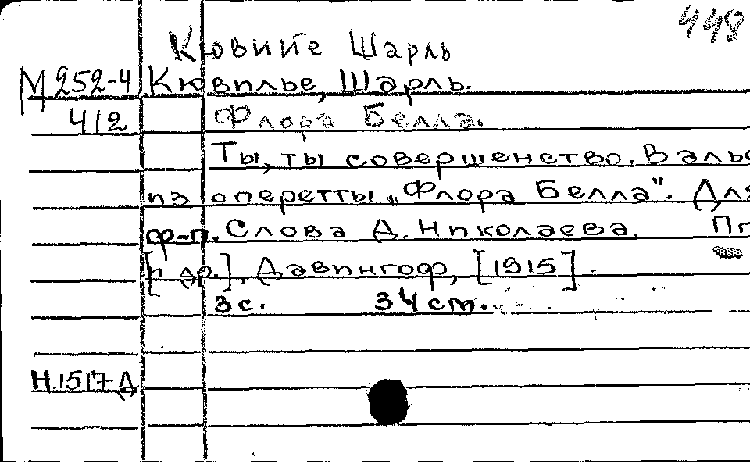 448
Кювийе Шарль
М 252-4 Кювилье, Шарль.
412 Флора Белла.
Ты, ты совершенство. Валь
из оперетты „Флора Белла". Для
ф-п. Слова Д. Николаева. Пг
[и др.], Давингоф, [1915].
3 с. 34 см.
Н.1517-Д